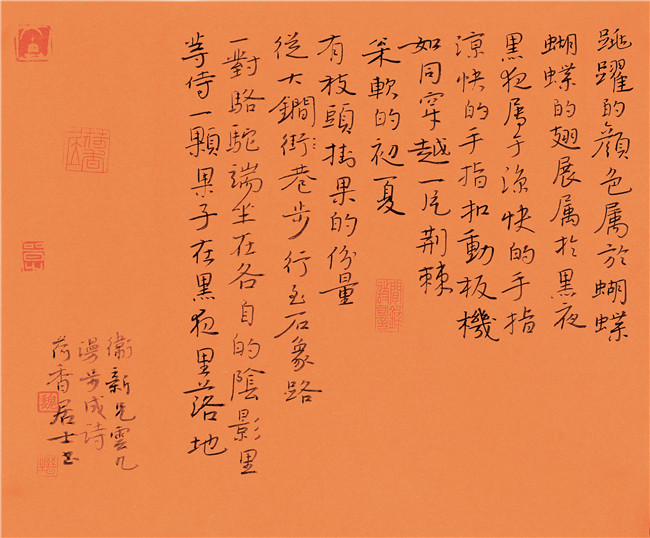 跳躍的顏色属於蝴蝶
蝴蝶的翅展属於黑夜
黑夜属于涼快的手指
涼快的手指扣動板機
如同穿越一片荆棘
柔軟的初夏
有枝頭掛果的份量
從大鐧銜巷步行至石象路
一對駱駝端坐在各自的陰影里
等待一顆果子在黑夜里落地
衛新兄雲凡
漫步成詩
荷香居士书